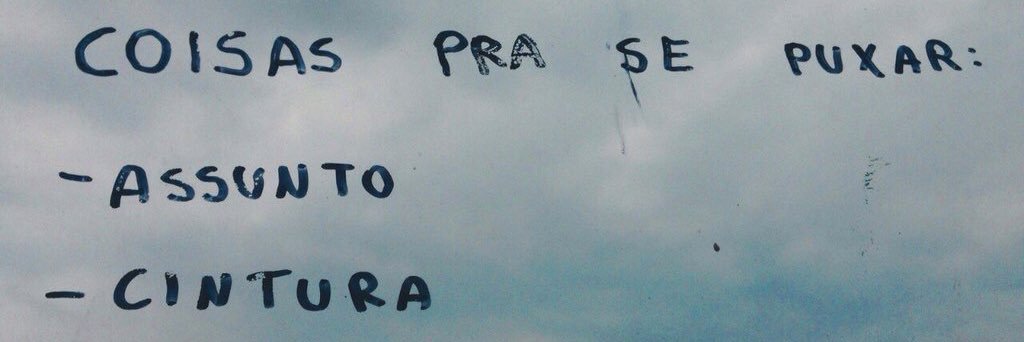 COISAS PRA SE PUXAR:
- ASSUNTO
- CINTURA